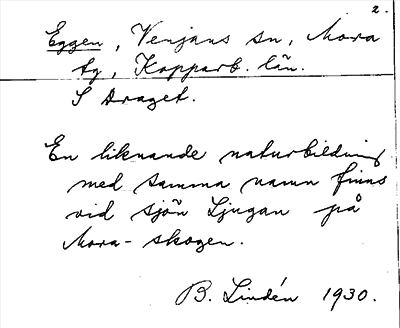 2.
Eggen, Venjans sn, Mora
tg, Kopparb. län.
S Draget.
En liknande naturbildning
med samma namn finns
vid sjön Ljugan på
Mora-skogen.
B. Lindén 1930.